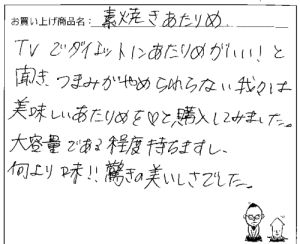 お買い上げ商品名: 素焼きあたりめ
TVでダイエットにあたりめがいい！と
聞き、つまみがやめられらない我が家は
美味しいあたりめを♡と、購入してみました。
大容量である程度持ちますし、
何より味!! 驚きの美いしさでした。